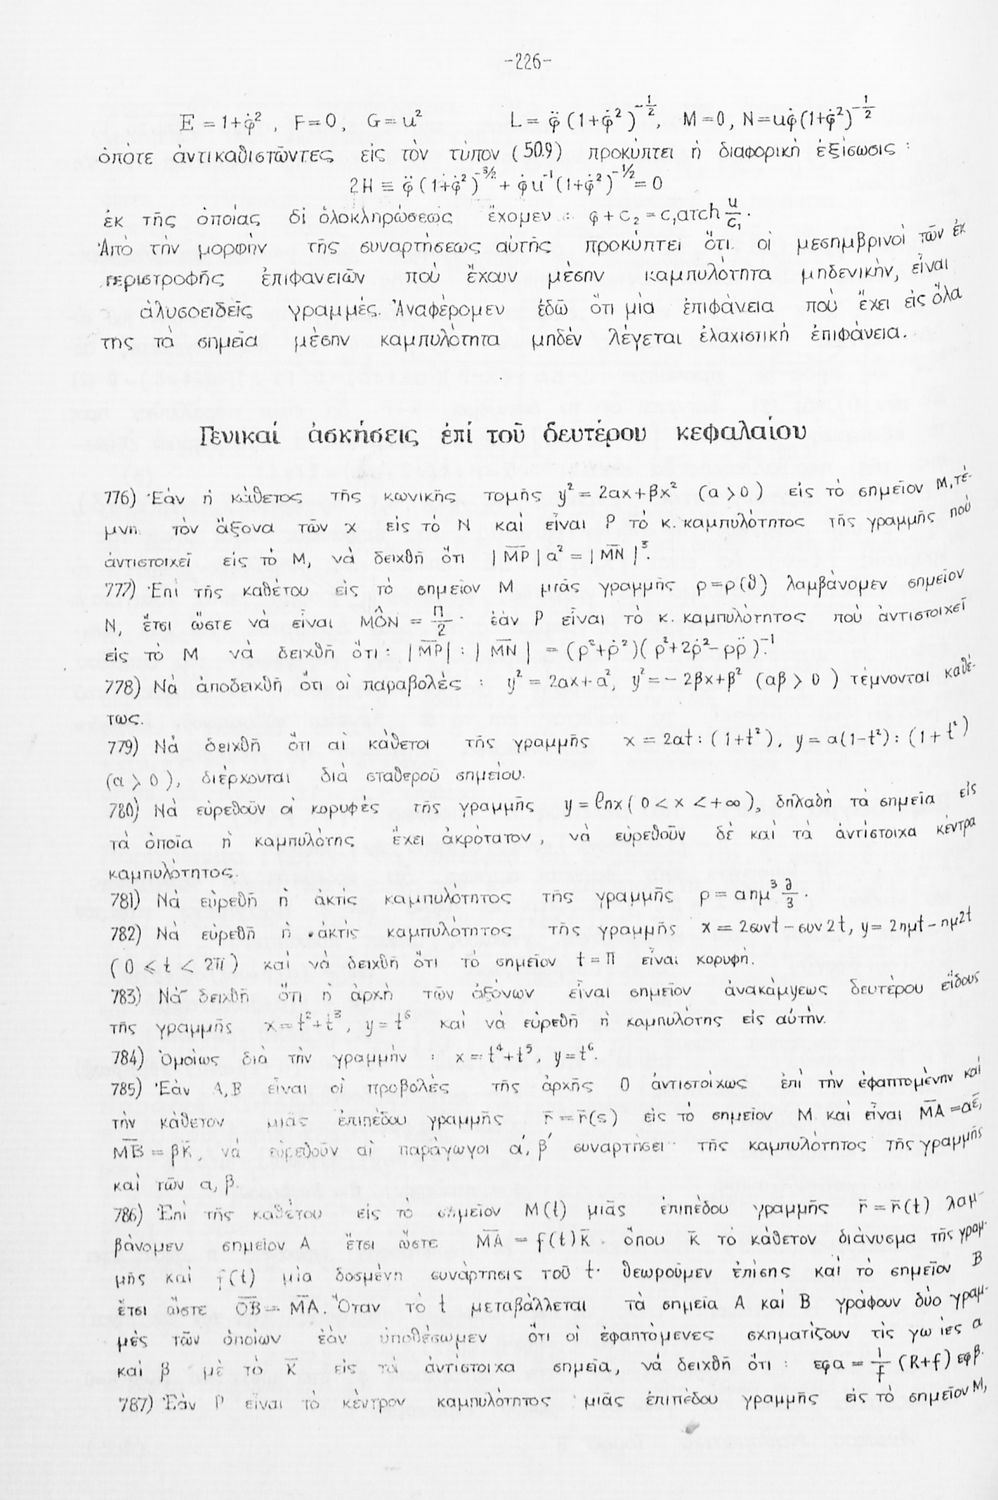 -226-
E = 1+φ̇², F=0, G=u² L= φ̈ (1+φ̇²)^{-1/2}, M=0, N=uφ̇(1+φ̇²)^{-1/2}
ὁπότε ἀντικαθιστῶντες εἰς τὸν τύπον (50.9) προκύπτει ἡ διαφορικὴ ἐξίσωσις :
2H ≡ φ̈ (1+φ̇²)^{-3/2} + φ̇ u^{-1} (1+φ̇²)^{-1/2} = 0
ἐκ τῆς ὁποίας δι' ὁλοκληρώσεως ἔχομεν : φ + c₂ = c₁ arch u/c₁.
Ἀπὸ τὴν μορφὴν τῆς συναρτήσεως αὐτῆς προκύπτει ὅτι οἱ μεσημβρινοὶ τῶν ἐκ
περιστροφῆς ἐπιφανειῶν ποὺ ἔχουν μέσην καμπυλότητα μηδενικήν, εἶναι
ἁλυσοειδεῖς γραμμές. Ἀναφέρομεν ἐδῶ ὅτι μία ἐπιφάνεια ποὺ ἔχει εἰς ὅλα
της τὰ σημεῖα μέσην καμπυλότητα μηδὲν λέγεται ἐλαχιστικὴ ἐπιφάνεια.
Γενικαί ἀσκήσεις ἐπί τοῦ δευτέρου κεφαλαίου
776) Ἐὰν ἡ κάθετος τῆς κωνικῆς τομῆς y² = 2αx+βx² (α > 0) εἰς τὸ σημεῖον M, τέ-
μνη τὸν ἄξονα τῶν x εἰς τὸ N καὶ εἶναι P τὸ κ. καμπυλότητος τῆς γραμμῆς ποὺ
ἀντιστοιχεῖ εἰς τὸ M, νὰ δειχθῆ ὅτι |M̅P̅| α² = |M̅N̅|³.
777) Ἐπὶ τῆς καθέτου εἰς τὸ σημεῖον M μιᾶς γραμμῆς ρ=ρ(θ) λαμβάνομεν σημεῖον
N, ἔτσι ὥστε νὰ εἶναι MÔN = Π/2 · ἐὰν P εἶναι τὸ κ. καμπυλότητος ποὺ ἀντιστοιχεῖ
εἰς τὸ M νὰ δειχθῆ ὅτι : |M̅P̅| : |M̅N̅| = (ρ²+ρ̇²)(ρ²+2ρ̇²-ρρ̈)^{-1}.
778) Νὰ ἀποδειχθῆ ὅτι οἱ παραβολές : y² = 2αx+α², y² = -2βx+β² (αβ > 0) τέμνονται καθέ-
τως.
779) Νὰ δειχθῆ ὅτι αἱ κάθετοι τῆς γραμμῆς x = 2αt : (1+t²), y = α(1-t²) : (1+t²)
(α > 0), διέρχονται διὰ σταθεροῦ σημείου.
780) Νὰ εὑρεθοῦν οἱ κορυφές τῆς γραμμῆς y = ℓnx (0 < x < +∞), δηλαδὴ τὰ σημεῖα εἰς
τὰ ὁποῖα ἡ καμπυλότης ἔχει ἀκρότατον, νὰ εὑρεθοῦν δὲ καὶ τὰ ἀντίστοιχα κέντρα
καμπυλότητος.
781) Νὰ εὑρεθῆ ἡ ἀκτὶς καμπυλότητος τῆς γραμμῆς ρ = αημ³ ∂/3.
782) Νὰ εὑρεθῆ ἡ ἀκτὶς καμπυλότητος τῆς γραμμῆς x = 2συνt - συν2t, y = 2ημt - ημ2t
(0 ⩽ t < 2π) καὶ νὰ δειχθῆ ὅτι τὸ σημεῖον t = Π εἶναι κορυφή.
783) Νὰ δειχθῆ ὅτι ἡ ἀρχὴ τῶν ἀξόνων εἶναι σημεῖον ἀνακάμψεως δευτέρου εἴδους
τῆς γραμμῆς x = t²+t³, y = t⁶ καὶ νὰ εὑρεθῆ ἡ καμπυλότης εἰς αὐτήν.
784) Ὁμοίως διὰ τὴν γραμμήν : x = t⁴+t⁵, y = t⁶.
785) Ἐὰν A, B εἶναι οἱ προβολές τῆς ἀρχῆς O ἀντιστοίχως ἐπὶ τὴν ἐφαπτομένην καὶ
τὴν κάθετον μιᾶς ἐπιπέδου γραμμῆς r̄ = r̄(s) εἰς τὸ σημεῖον M καὶ εἶναι M̅A̅ = αε̄,
M̅B̅ = βK̄, νὰ εὑρεθοῦν αἱ παράγωγοι α', β' συναρτήσει τῆς καμπυλότητος τῆς γραμμῆς
καὶ τῶν α, β.
786) Ἐπὶ τῆς καθέτου εἰς τὸ σημεῖον M(t) μιᾶς ἐπιπέδου γραμμῆς r̄ = r̄(t) λαμ-
βάνομεν σημεῖον A ἔτσι ὥστε M̅A̅ = f(t)K̄ ὅπου K̄ τὸ κάθετον διάνυσμα τῆς γραμ-
μῆς καὶ f(t) μία δοσμένη συνάρτησις τοῦ t· θεωροῦμεν ἐπίσης καὶ τὸ σημεῖον B
ἔτσι ὥστε O̅B̅ = M̅A̅. Ὅταν τὸ t μεταβάλλεται τὰ σημεῖα A καὶ B γράφουν δύο γραμ-
μὲς τῶν ὁποίων ἐὰν ὑποθέσωμεν ὅτι οἱ ἐφαπτόμενες σχηματίζουν τὶς γω ίες α
καὶ β μὲ τὸ K̄ εἰς τὰ ἀντίστοιχα σημεῖα, νὰ δειχθῆ ὅτι : εφα = 1/f (R+f) εφβ.
787) Ἐὰν P εἶναι τὸ κέντρον καμπυλότητος μιᾶς ἐπιπέδου γραμμῆς εἰς τὸ σημεῖον M,